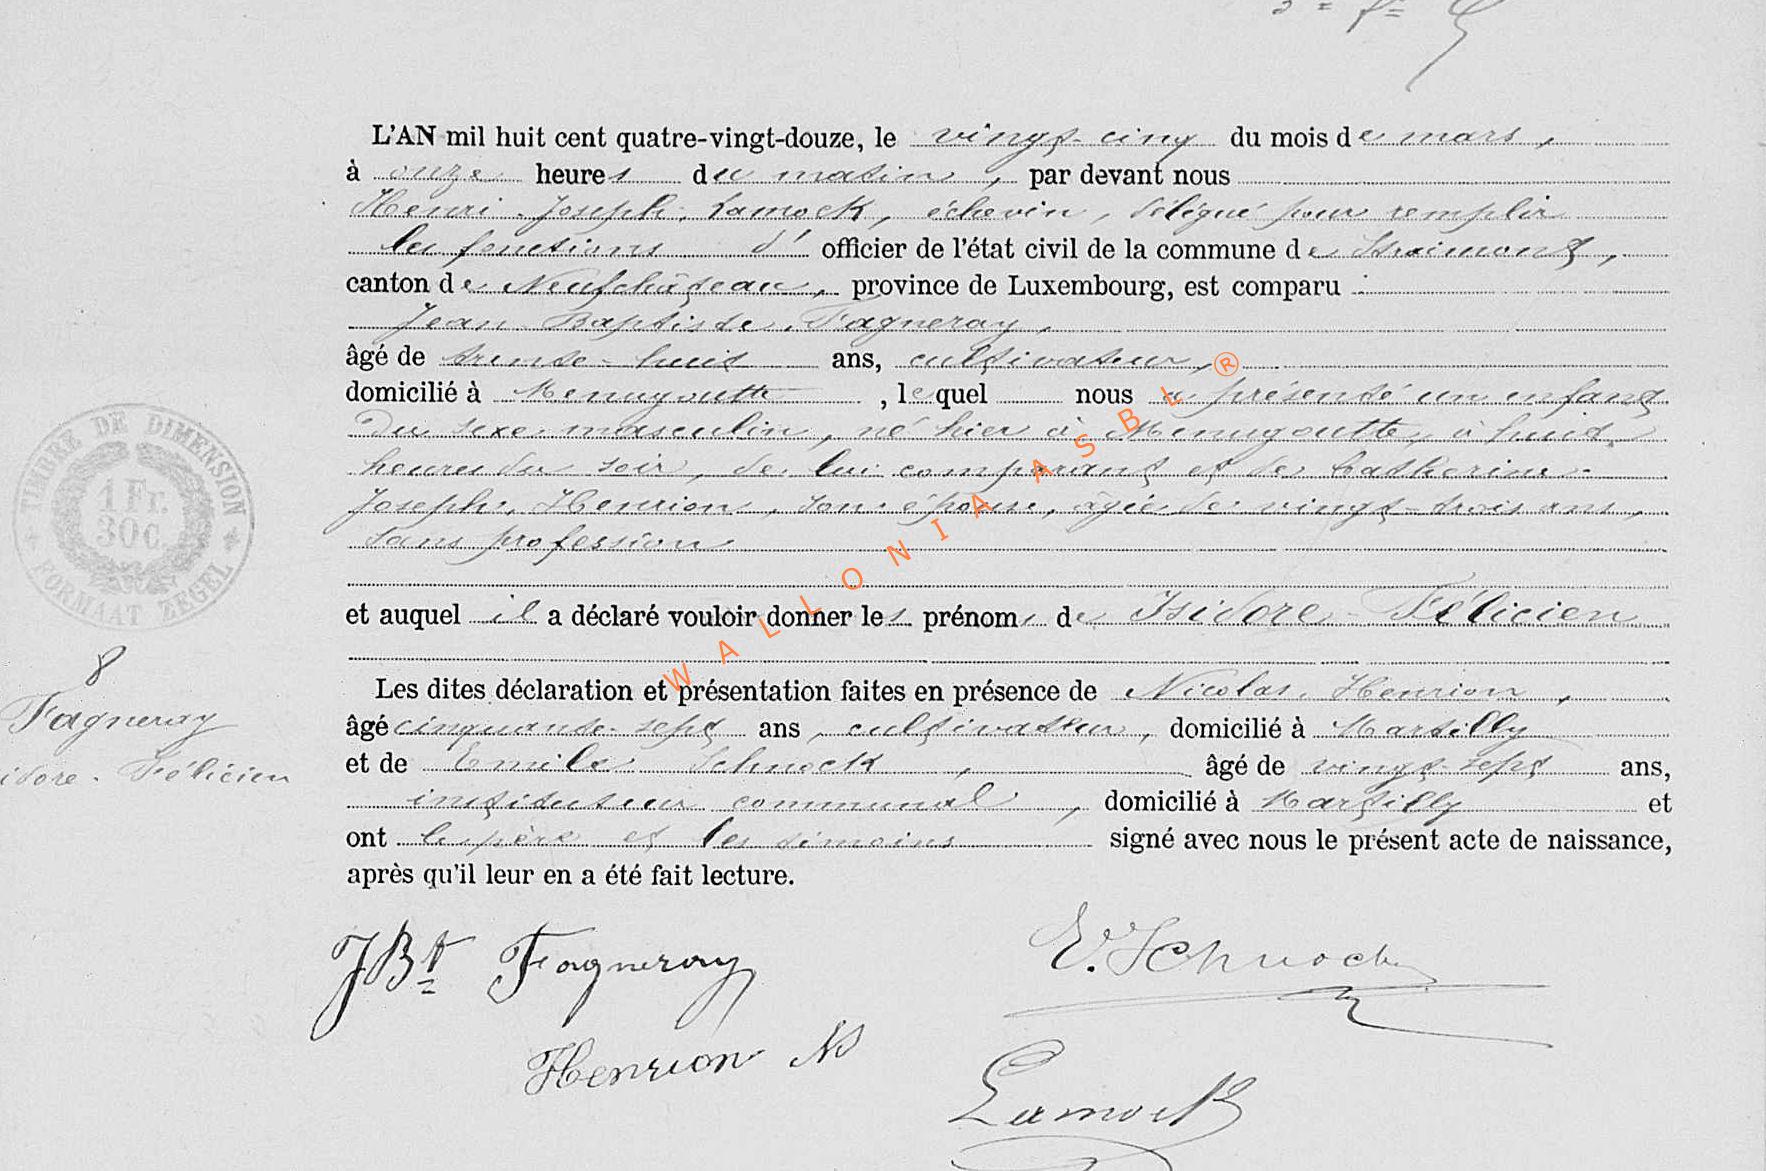 L'AN mil huit cent quatre-vingt-douze, le vingt-cinq du mois de mars,
à onze heures du matin, par devant nous
Henri Joseph Lamock, échevin, délégué pour remplir
les fonctions d' officier de l'état civil de la commune de Straimont,
canton de Neufchâteau, province de Luxembourg, est comparu
Jean Baptiste Fagneray,
âgé de trente-huit ans, cultivateur,
domicilié à Menugoutte, lequel nous a présenté un enfant
du sexe masculin, né hier à Menugoutte, à huit
heures du soir, de lui comparant et de Catherine
Joseph Henrion, son épouse, âgée de vingt-trois ans,
sans profession
et auquel il a déclaré vouloir donner les prénoms de Isidore Félicien
Les dites déclaration et présentation faites en présence de Nicolas Henrion,
âgé cinquante-sept ans, cultivateur, domicilié à Martilly
et de Emile Schnock, âgé de vingt-sept ans,
instituteur communal, domicilié à Martilly et
ont le père et les témoins signé avec nous le présent acte de naissance,
après qu'il leur en a été fait lecture.
TIMBRE DE DIMENSION
1 Fr.
30 c.
FORMAAT ZEGEL
8
Fagneray
idore Félicien
JBt Fagneray
E. Schnock
Henrion Ns
Lamock
WALLONIA ASBL ®